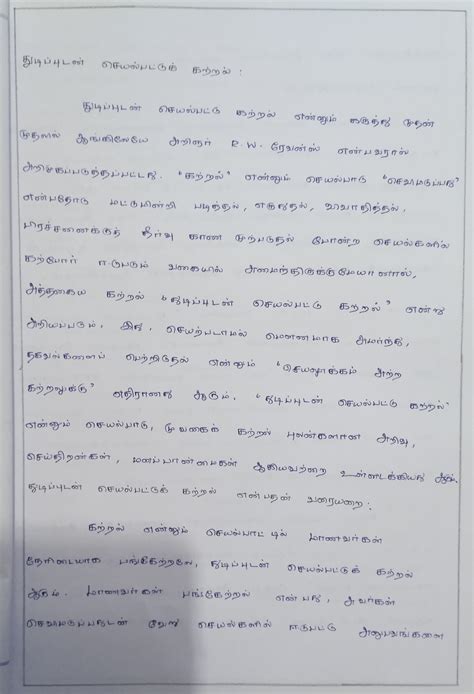 துடிப்புடன் செயல்பட்டுக் கற்றல் :
துடிப்புடன் செயல்பட்டு கற்றல் என்னும் கருத்து முதன்
முதலில் ஆங்கிலேயே அறிஞர் R.W. ரேவன்ஸ் என்பவரால்
அறிமுகப்படுத்தப்பட்டது. "கற்றல்" என்னும் செயல்பாடு "செவிமடுப்பது"
என்பதோடு மட்டுமின்றி படித்தல், எழுதுதல், விவாதித்தல்,
பிரச்சனைக்குத் தீர்வு காண முற்படுதல் போன்ற செயல்களில்
கற்போர் ஈடுபடும் வகையில் அமைந்திருக்குமேயானால்,
அத்தகைய கற்றல் "துடிப்புடன் செயல்பட்டு கற்றல்" என்று
அறியப்படும். இது, செயற்படாமல் மௌனமாக அமர்ந்து,
தகவல்களைப் பெற்றிடுதல் என்னும் "செயலூக்கம் அற்ற
கற்றலுக்கு" எதிரானது ஆகும். "துடிப்புடன் செயல்பட்டு கற்றல்"
என்னும் செயல்பாடு, மூவகைக் கற்றல் புலன்களான அறிவு,
செய்திறன்கள், மனப்பான்மைகள் ஆகியவற்றை உள்ளடக்கியது ஆகும்.
துடிப்புடன் செயல்பட்டுக் கற்றல் என்பதன் வரையறை :
கற்றல் என்னும் செயல்பாட்டில் மாணவர்கள்
நேரிடையாக பங்கேற்றலே, துடிப்புடன் செயல்பட்டுக் கற்றல்
ஆகும். மாணவர்கள் பங்கேற்றல் என்பது, அவர்கள்
செவிமடுப்பதுடன் வேறு செயல்களில் ஈடுபட்டு அனுபவங்களை